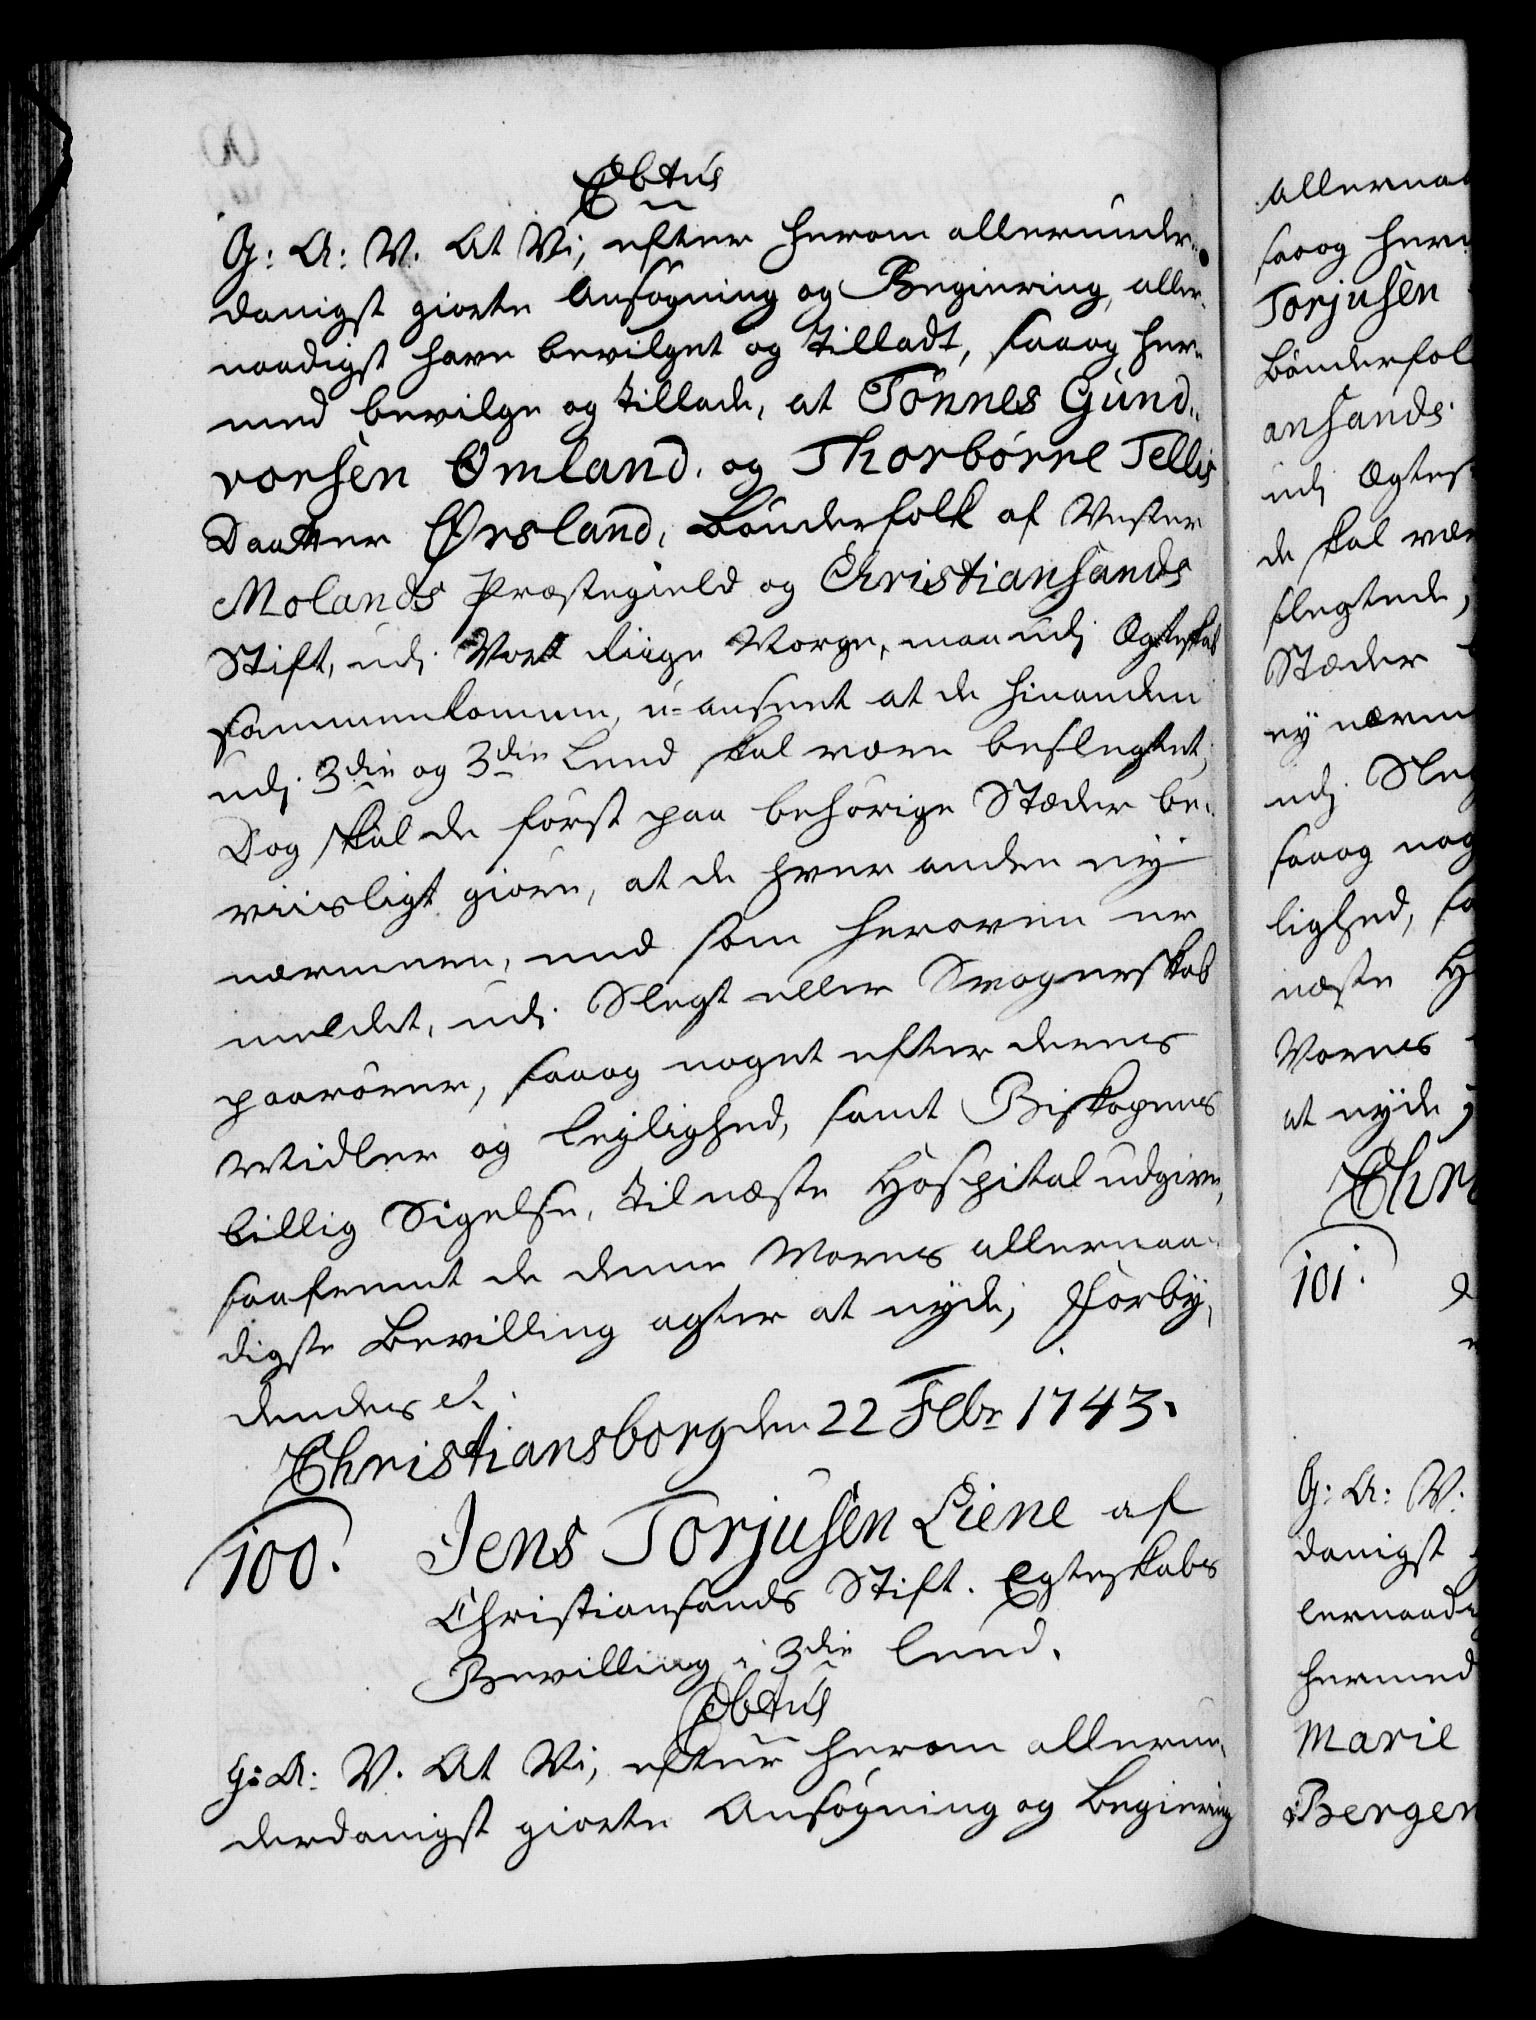 Ebtus
G: A: V. At Vi, efter herom allerunder-
danigst giorte Ansøgning og Begiering, aller-
naadigst have bevilget og tilladt, saaog her-
med bevilge og tillade, at Tønnes Gund-
vorsen Omland, og Thorbørre Tellis
Daatter Ørsland, Bønderfolk af Vester
Molands Præstegield og Christiansands
Stift, udj Vort Riige Norge, maa udj Egteskab
sammenkomme, u-anseet at de hinanden
udj 3die og 3die Leed skal være beslegtet,
Dog skal de først paa behørige Stæder be-
viisligt giøre, at de hver anden ej
nærmere, end som heroven er
meldet, udj Slegt eller Svogerskab
paarører, saaog noget efter deres
Midler og lejlighed, samt Biskopens
billig Sigelse, til næste Hospital udgive,
saafremt de denne Vores allernaa-
digste Bevilling agter at nyde; Forby-
dendes et.
Christiansborg den 22 Febr 1743.
100. Jens Torjusen Liene af
Christiansands Stift. Egteskabs
Bevilling i 3die leed.
Ebtus
G: A: V. At Vi, efter herom allerun-
derdanigst giorte Ansøgning og Begiering
allernaa
saaog her
Torjusen
Bønderfol
ansands
udj Egtes
de skal vær
slegtede,
Stæder
ej nærm
udj Sleg
saaog nog
lighed, sa
næste H
Vores
at nyde;
Chr
101.
G: A: V.
danigst
lernaadi
hermed
Marie
Bergen